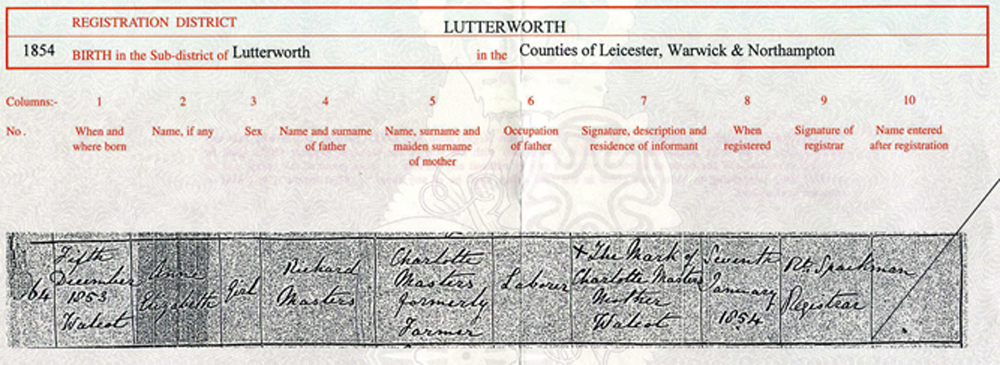 REGISTRATION DISTRICT
LUTTERWORTH
1854 BIRTH in the Sub-district of Lutterworth in the Counties of Leicester, Warwick & Northampton
Columns:- 1 2 3 4 5 6 7 8 9 10
No. When and where born
Name, if any
Sex
Name and surname of father
Name, surname and maiden surname of mother
Occupation of father
Signature, description and residence of informant
When registered
Signature of registrar
Name entered after registration
64
Fifth
December
1853
Walcot
Anne
Elizabeth
Girl
Richard
Masters
Charlotte
Masters
formerly
Farmer
Laborer
x The Mark of
Charlotte Masters
Mother
Walcot
Seventh
January
1854
Rt. Spackman
Registrar